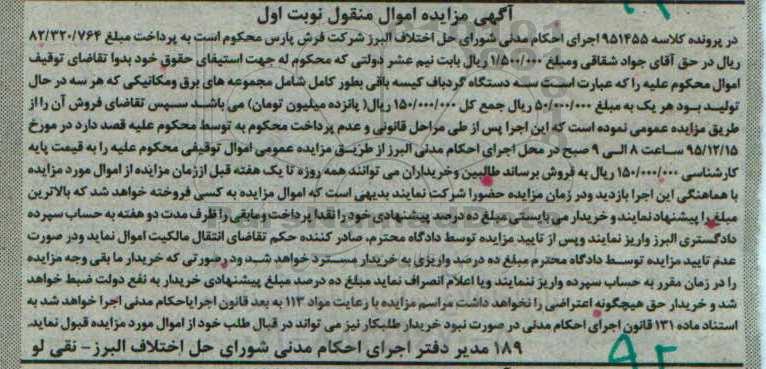 آگهی مزایده اموال منقول نوبت اول
در پرونده کلاسه ۹۵۱۴۵۵ اجرای احکام مدنی شورای حل اختلاف البرز شرکت فرش پارس محکوم است به پرداخت مبلغ ۸۲/۳۲۰/۷۶۴
ریال در حق آقای جواد شقاقی ومبلغ ۱/۵۰۰/۰۰۰ ریال بابت نیم عشر دولتی که محکوم له جهت استیفای حقوق خود بدوا تقاضای توقیف
اموال محکوم علیه را که عبارت است از سه دستگاه گردباف کیسه بافی بطور کامل شامل مجموعه های برق ومکانیکی که هر سه در حال
تولید بود هر یک به مبلغ ۵۰/۰۰۰/۰۰۰ ریال جمع کل ۱۵۰/۰۰۰/۰۰۰ ریال( پانزده میلیون تومان) می باشد سپس تقاضای فروش آن را از
طریق مزایده عمومی نموده است که این اجرا پس از طی مراحل قانونی و عدم پرداخت محکوم به توسط محکوم علیه قصد دارد در مورخ
۹۵/۱۲/۱۵ ساعت ۸ الی ۹ صبح در محل اجرای احکام مدنی البرز از طریق مزایده عمومی اموال توقیفی محکوم علیه را به قیمت پایه
کارشناسی ۱۵۰/۰۰۰/۰۰۰ ریال به فروش برساند طالبین وخریداران می توانند همه روزه تا یک هفته قبل اززمان مزایده از اموال مورد مزایده
با هماهنگی این اجرا بازدید ودر زمان مزایده حضورا شرکت نمایند بدیهی است که اموال مزایده به کسی فروخته خواهد شد که بالاترین
مبلغ را پیشنهاد نمایند و خریدار می بایستی مبلغ ده درصد پیشنهادی خود را نقدا پرداخت ومابقی را ظرف مدت دو هفته به حساب سپرده
دادگستری البرز واریز نمایند وپس از تایید مزایده توسط دادگاه محترم، صادر کننده حکم تقاضای انتقال مالکیت اموال نماید ودر صورت
عدم تایید مزایده توسط دادگاه محترم مبلغ ده درصد واریزی به خریدار مسترد خواهد شد ودر صورتی که خریدار ما بقی وجه مزایده
را در زمان مقرر به حساب سپرده واریز ننمایند ویا اعلام انصراف نماید مبلغ ده درصد مبلغ پیشنهادی خریدار به نفع دولت ضبط خواهد
شد و خریدار حق هیچگونه اعتراضی را نخواهد داشت مراسم مزایده با رعایت مواد ۱۱۳ به بعد قانون اجرایاحکام مدنی اجرا خواهد شد به
استناد ماده ۱۳۱ قانون اجرای احکام مدنی در صورت نبود خریدار طلبکار نیز می تواند در قبال طلب خود از اموال مورد مزایده قبول نماید.
۱۸۹ مدیر دفتر اجرای احکام مدنی شورای حل اختلاف البرز - نقی لو